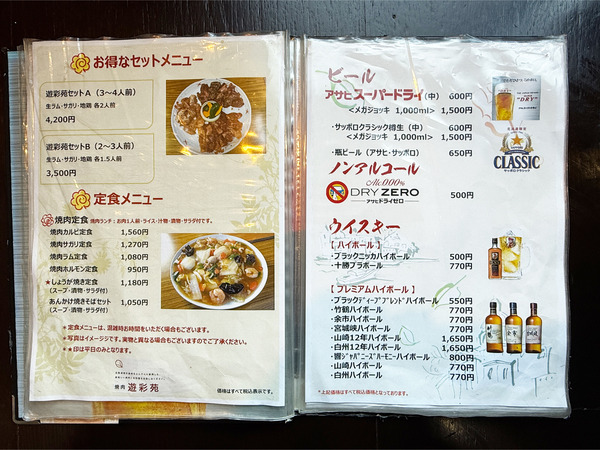 お得なセットメニュー
遊彩苑セットA （3〜4人前）
生ラム・サガリ・地鶏 各2人前
4,200円
遊彩苑セットB （2〜3人前）
生ラム・サガリ・地鶏 各1.5人前
3,500円
定食メニュー
焼肉定食 焼肉ランチ：お肉1人前・ライス・汁物・漬物・サラダ付です。
焼肉カルビ定食 1,560円
焼肉サガリ定食 1,270円
焼肉ラム定食 1,080円
焼肉ホルモン定食 950円
★しょうが焼き定食 1,180円
(スープ・漬物・サラダ付)
あんかけ焼きそばセット 1,050円
(スープ・漬物・サラダ付)
＊定食メニューは、混雑時お時間をいただく場合もございます。
＊写真はイメージジです。実物と異なる場合もございますのでご了承ください。
＊★印は平日のみとなります。
焼肉 遊彩苑
価格はすべて税込表示です。
ビール
アサヒスーパードライ(中) 600円
<メガジョッキ 1,000ml> 1,500円
・サッポロクラシック樽生（中） 600円
<メガジョッキ 1,000ml> 1,500円
・瓶ビール（アサヒ・サッポロ） 650円
"DRY"
CLASSIC
サッポロクラシック
ノンアルコール
Alc.0.00%
DRY ZERO 500円
アサヒドライゼロ
ウイスキー
【 ハイボール 】
・ブラックニッカハイボール 500円
・十勝ブラボール 770円
【 プレミアムハイボール 】
・ブラックディープブレンドハイボール 550円
・竹鶴ハイボール 770円
・余市ハイボール 770円
・宮城峡ハイボール 770円
・山崎12年ハイボール 1,650円
・白州12年ハイボール 1,650円
・響ジャパニーズハーモニーハイボール 800円
・山崎ハイボール 770円
・白州ハイボール 770円
＊上記価格はすべて税込価格となっております。